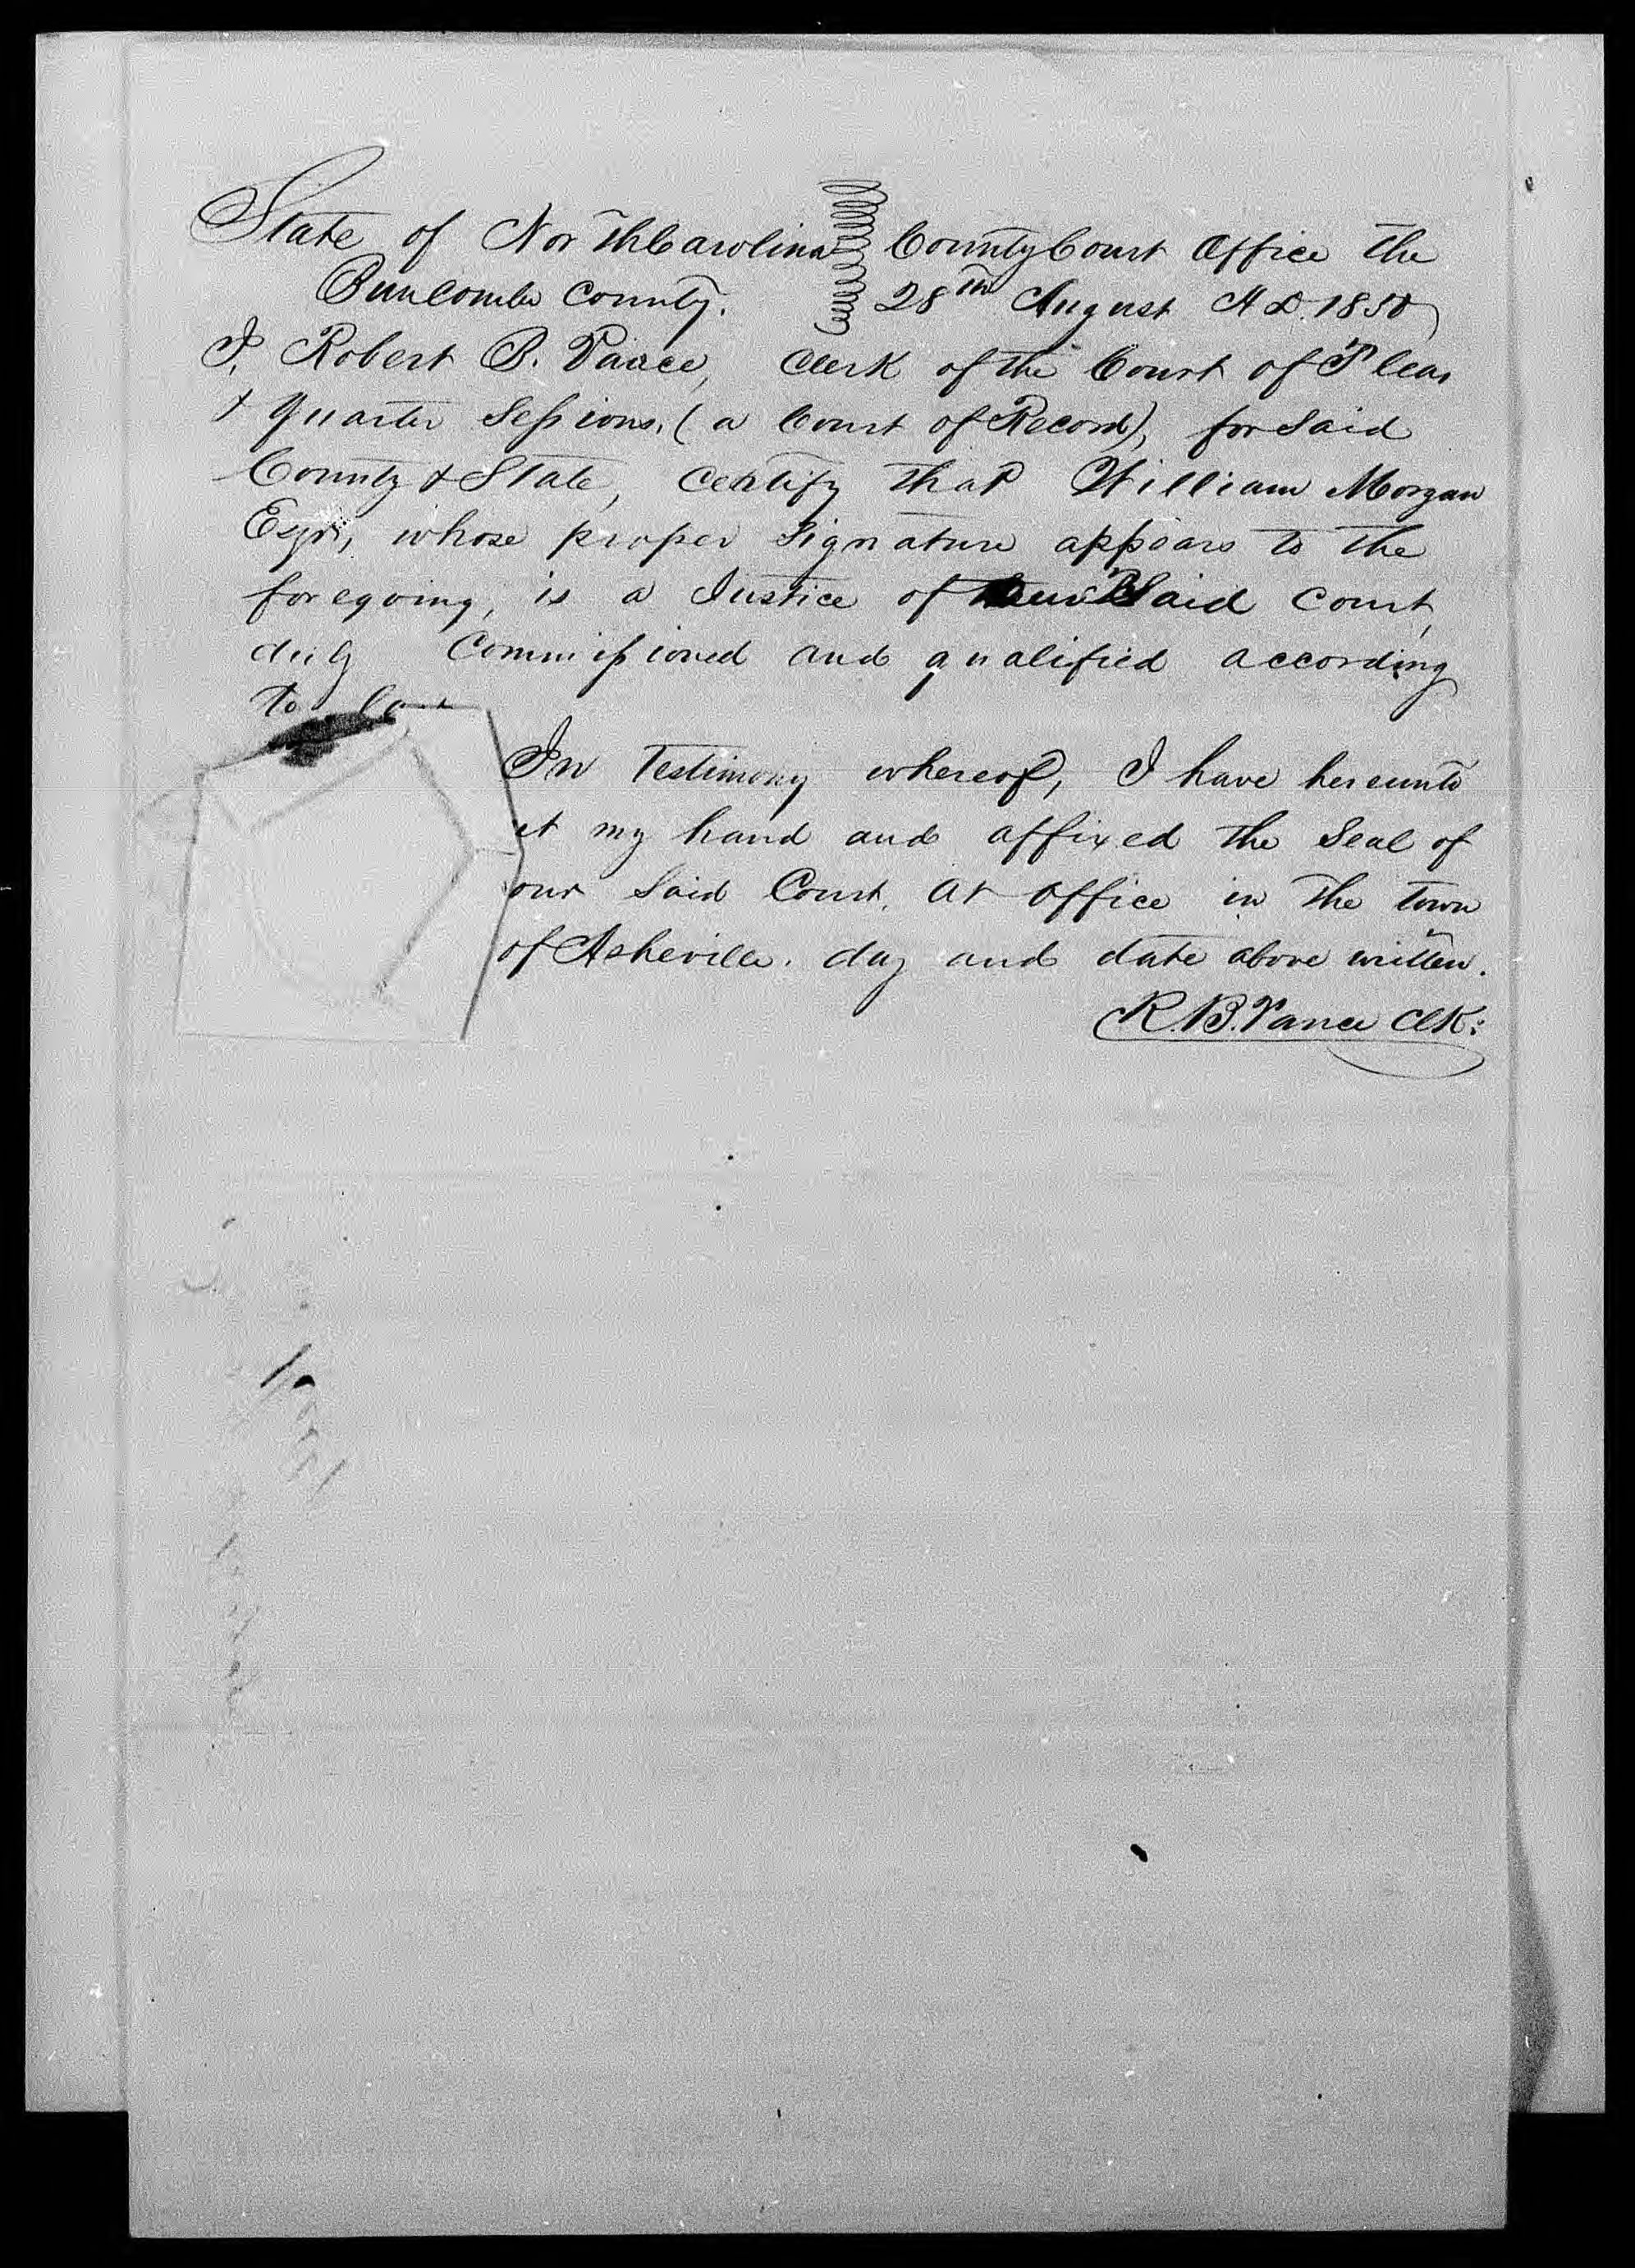 State of North Carolina County Court Office the
Buncombe County. 28th August A.D. 1850
I, Robert B. Vance, Clerk of the Court of Pleas
& Quarter Sessions, (a Court of Record), for said
County & State, certify that William Morgan
Esqr, whose proper signature appears to the
foregoing, is a Justice of our Said Court,
duly Commissioned and qualified according
to law
In Testimony whereof, I have hereunto
set my hand and affixed the Seal of
our Said Court, at office in the town
of Asheville. day and date above written.
R. B. Vance Clk: